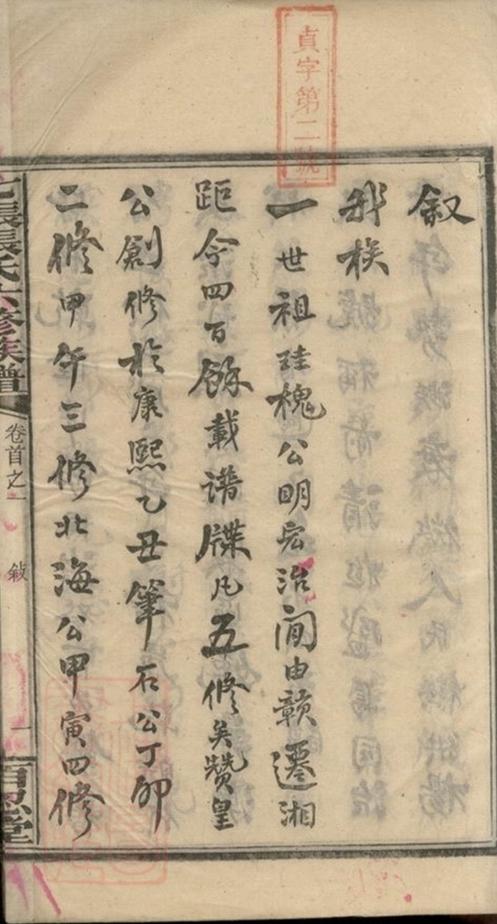 貞字第二號
敘
我族
一世祖珪槐公明宏治間由贛遷湘
距今四百餘載譜牒凡五修矣贊皇
公創修於康熙乙丑筆石公丁卯
二修甲午三修北海公甲寅四修
張氏六修族譜
卷首之一
敍
一
百忍堂